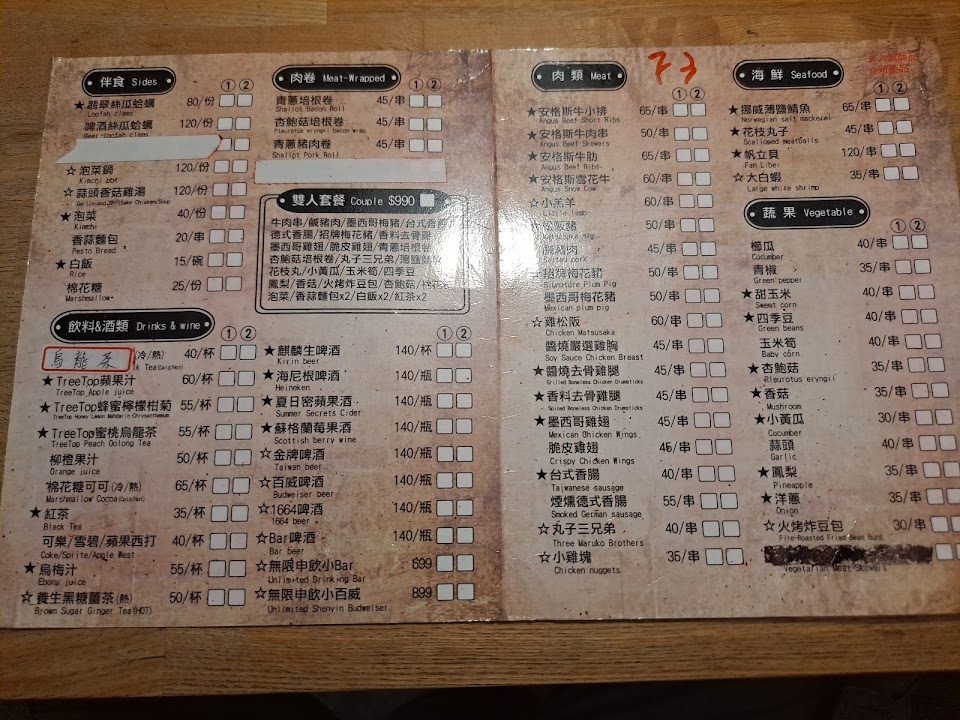 伴食 Sides ① ②
★翡翠絲瓜蛤蠣 80/份
Loofah clams
啤酒絲瓜蛤蠣 120/份
Beer-loofah clams
☆泡菜鍋 120/份
Kimchi pot
☆蒜頭香菇雞湯 120/份
Garlic and Shiitake Chicken Soup
★泡菜 40/份
Kimchi
香蒜麵包 20/串
Pesto Bread
★白飯 15/碗
Rice
棉花糖 25/份
Marshmallow
肉卷 Meat-Wrapped ① ②
青蔥培根卷 45/串
Shallot Bacon Roll
杏鮑菇培根卷 45/串
Pleurotus eryngii bacon wrap
青蔥豬肉卷 45/串
Shallot Pork Roll
雙人套餐 Couple $990
牛肉串/鹹豬肉/墨西哥梅豬/台式香腸
德式香腸/招牌梅花豬/香料去骨雞
墨西哥雞翅/脆皮雞翅/青蔥培根卷
杏鮑菇培根卷/丸子三兄弟/薄鹽鯖魚
花枝丸/小黃瓜/玉米筍/四季豆
鳳梨/香菇/火烤炸豆包/杏鮑菇/棉花糖
泡菜/香蒜麵包x2/白飯x2/紅茶x2
飲料&酒類 Drinks & wine ① ②
烏龍茶(冷/熱) 40/杯
k Tea(Cold/Hot)
★TreeTop蘋果汁 60/杯
TreeTop Apple juice
★TreeTop蜂蜜檸檬柑菊 55/杯
TreeTop Honey Lemon Mandarin Chrysanthemum
★TreeTop蜜桃烏龍茶 55/杯
TreeTop Peach Oolong Tea
柳橙果汁 50/杯
Orange juice
棉花糖可可(冷/熱) 65/杯
Marshmallow Cocoa(Cold/Hot)
★紅茶 35/杯
Black Tea
可樂/雪碧/蘋果西打 40/杯
Coke/Sprite/Apple West
★烏梅汁 55/杯
Ebony juice
☆養生黑糖薑茶(熱) 50/杯
Brown Sugar Ginger Tea(HOT)
① ②
★麒麟生啤酒 140/瓶
Kirin beer
★海尼根啤酒 140/瓶
Heineken
★夏日密蘋果酒 140/瓶
Summer Secrets Cider
★蘇格蘭莓果酒 140/瓶
Scottish berry wine
☆金牌啤酒 140/瓶
Taiwan beer
☆百威啤酒 140/瓶
Budweiser beer
☆1664啤酒 140/瓶
1664 beer
☆Bar啤酒 140/瓶
Bar beer
☆無限申飲小Bar 699
Unlimited Drinking Bar
☆無限申飲小百威 899
Unlimited Shenyin Budweiser
73
肉類 Meat ① ②
★安格斯牛小排 65/串
Angus Beef Short Ribs
★安格斯牛肉串 50/串
Angus Beef Skewers
★安格斯牛肋 65/串
Angus Beef Ribs
★安格斯雪花牛 45/串
Angus Snow Cow
☆小羔羊 60/串
Little lamb
松阪豬 50/串
鹹豬肉 45/串
Salted pork
招牌梅花豬 50/串
Signature Plum Pig
墨西哥梅花豬 50/串
Mexican plum pig
☆雞松阪 60/串
Chicken Matsusaka
醬燒嚴選雞胸 45/串
Soy Sauce Chicken Breast
★醬燒去骨雞腿 65/串
Grilled Boneless Chicken Drumsticks
★香料去骨雞腿 65/串
Spiced Boneless Chicken Drumsticks
★墨西哥雞翅 50/串
Mexican Chicken Wings
脆皮雞翅 45/串
Crispy Chicken Wings
★台式香腸 40/串
Taiwanese sausage
煙燻德式香腸 55/串
Smoked German sausage
☆丸子三兄弟 40/串
Three Maruko Brothers
☆小雞塊 35/串
Chicken nuggets
海鮮 Seafood ① ②
★挪威薄鹽鯖魚 65/串
Norwegian salt mackerel
★花枝丸子 45/串
Scalloped meatballs
★帆立貝 50/串
Fan Libei
☆大白蝦 35/串
Large white shrimp
蔬果 Vegetable ① ②
櫛瓜 45/串
Cucumber
青椒 35/串
Green pepper
★甜玉米 40/串
Sweet corn
★四季豆 45/串
Green beans
玉米筍 40/串
Baby corn
★杏鮑菇 35/串
Pleurotus eryngii
★香菇 40/串
Mushroom
★小黃瓜 30/串
Cucumber
蒜頭 40/串
Garlic
★鳳梨 35/串
Pineapple
★洋蔥 35/串
Onion
☆火烤炸豆包 30/串
Fire-Roasted Fried Bean Buns
Vegetarian Meat Skewers